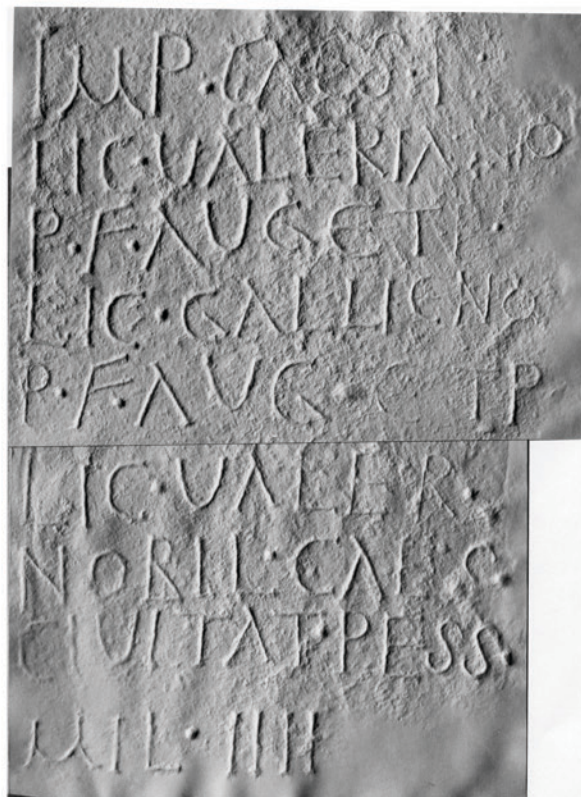 IMP · CAESS · P ·
LIC · VALERIANO
P · F · AUG ET P ·
LIC · GALLIENO
P · F · AUG · ET P
LIC · VALER ·
NOBIL · CAES ·
CIVITAT PESS ·
MIL · IIII